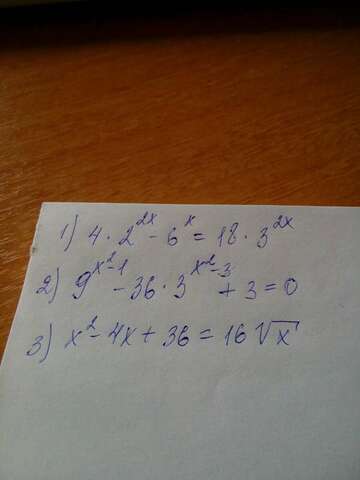 1) 4 · 2^{2x} - 6^x = 18 · 3^{2x}
2) 9^{x^2-1} - 36 · 3^{x^2-3} + 3 = 0
3) x^2 - 4x + 36 = 16 √x